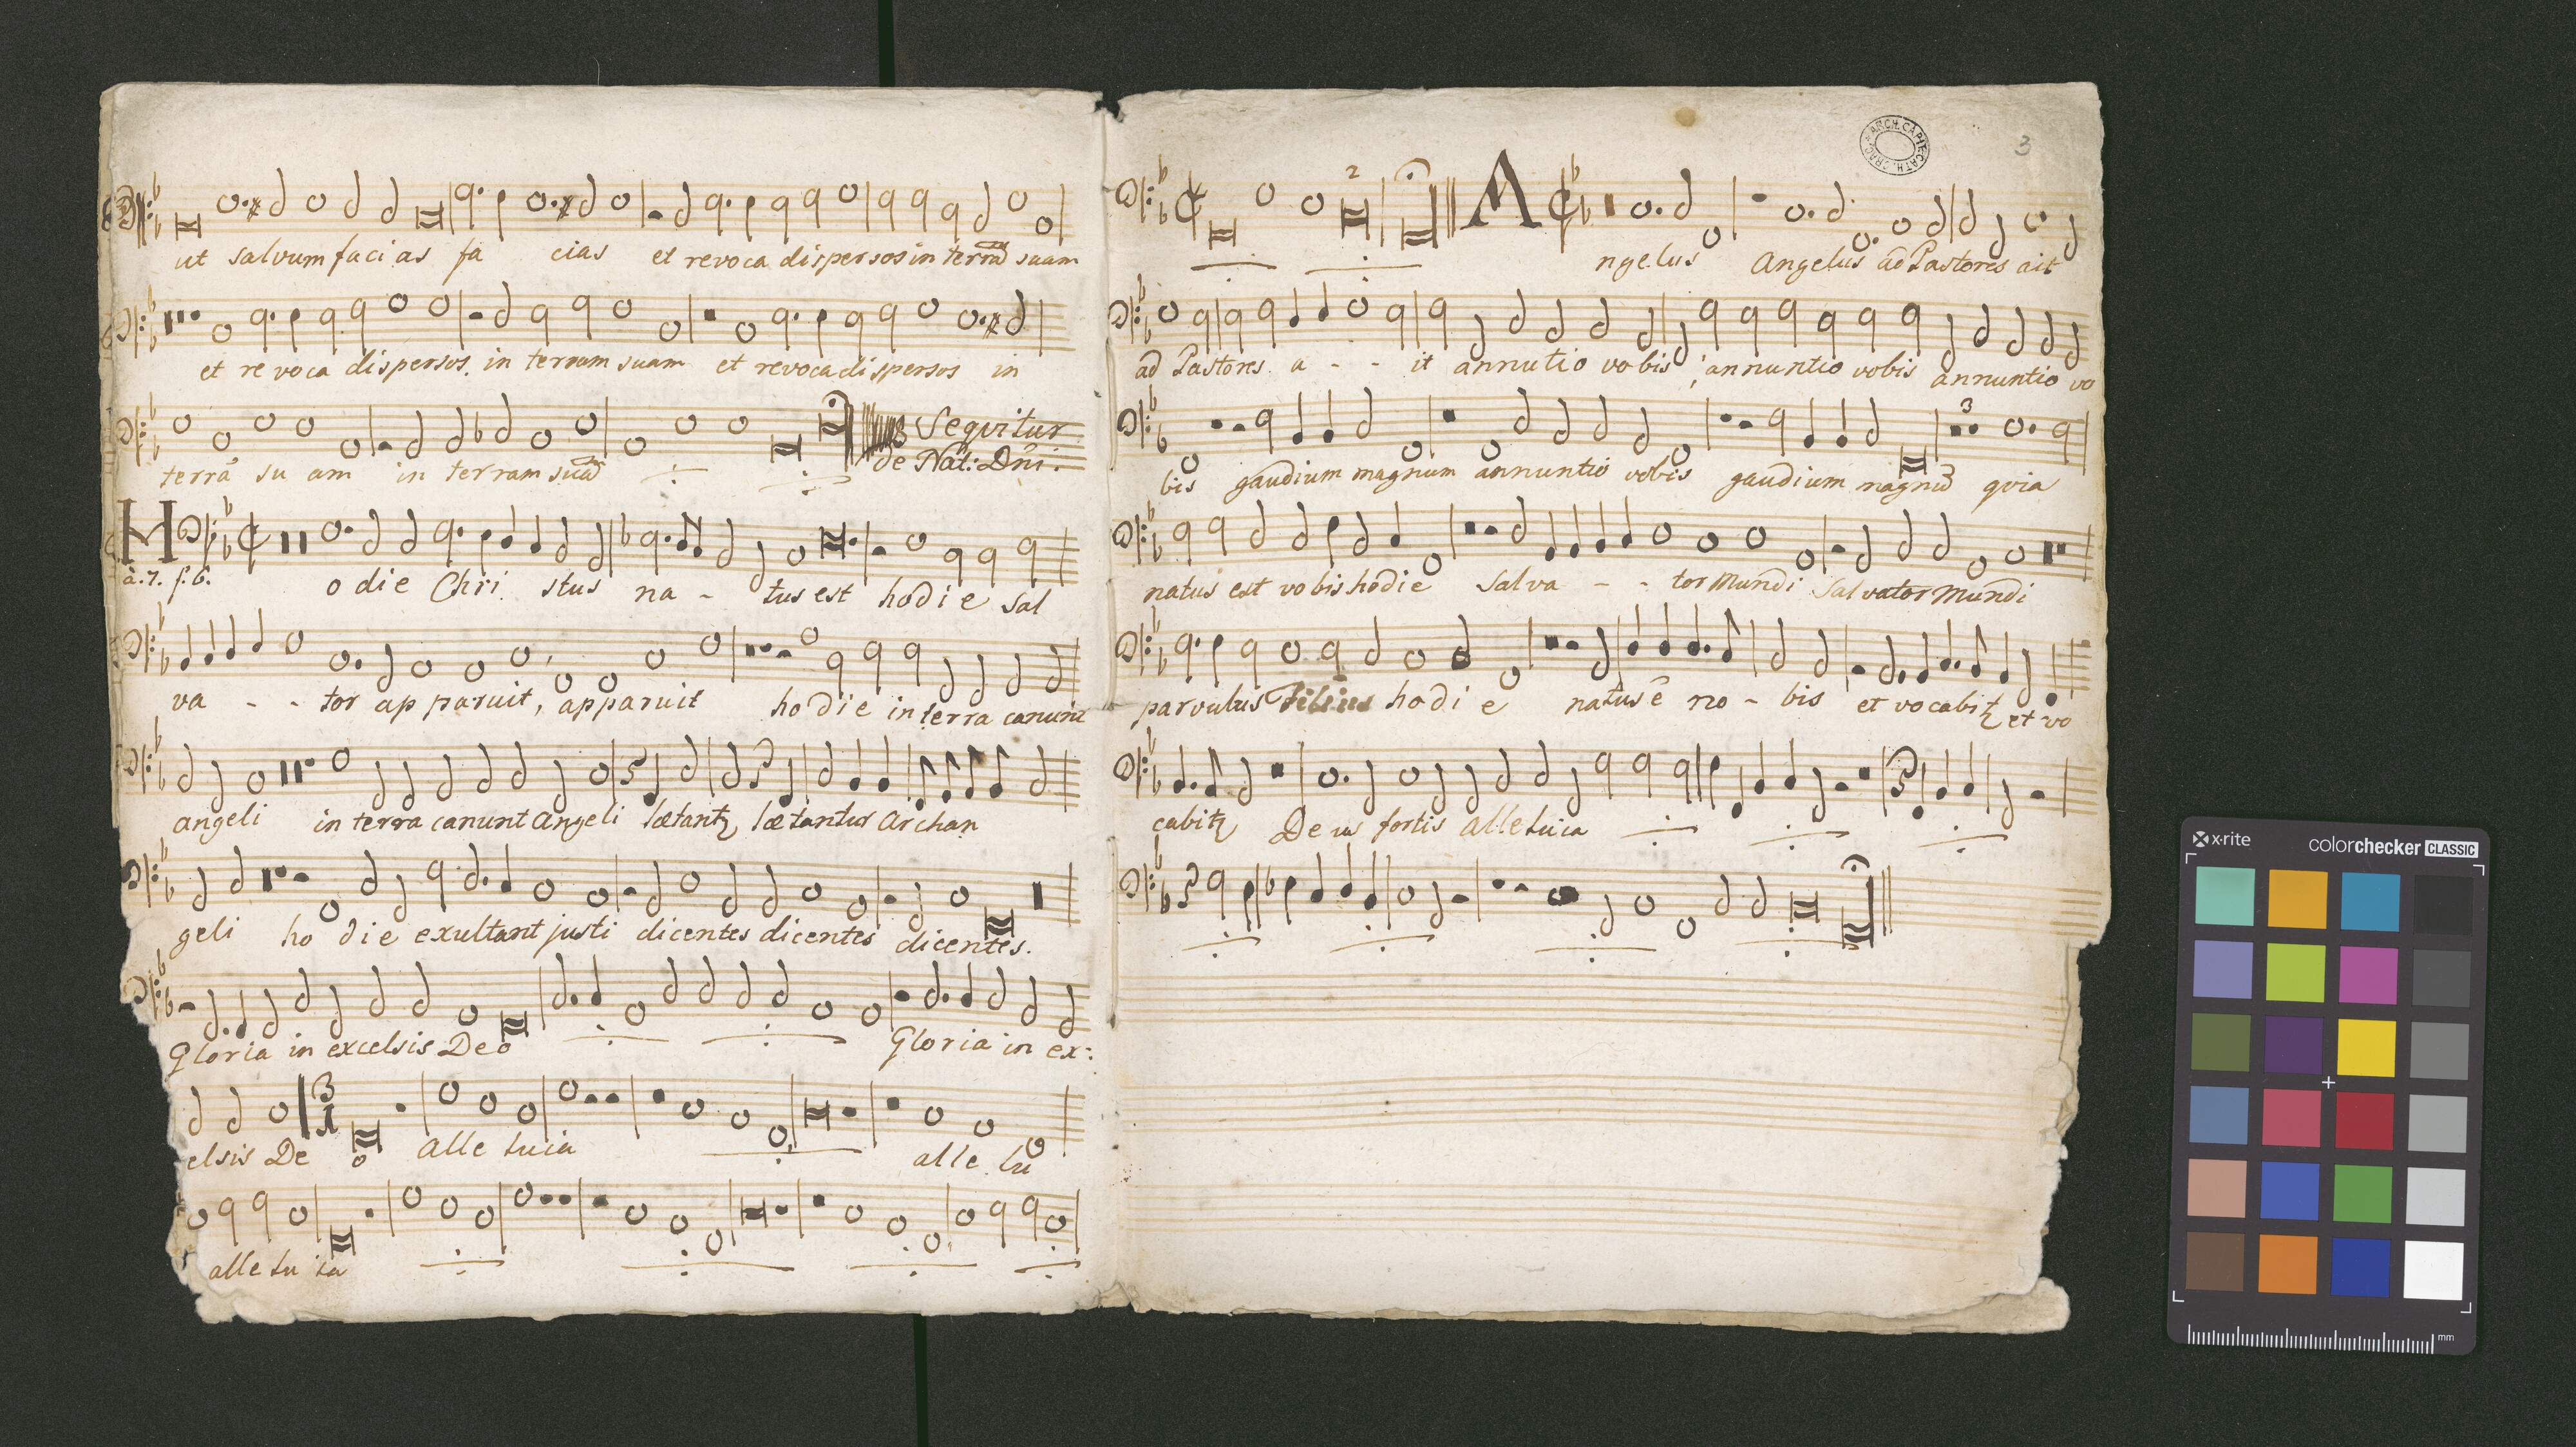 ut salvum facias fa cias et revoca dispersos in terrā suam
et re voca dispersos in terram suam et revoca dispersos in
terrā su am in terram suā
Sequitur
de Nat: Dñi.
H
à.7. f.6.
odie Chri stus na - tus est hodie sal
va - - tor ap paruit, apparuit hodie in terra canunt
angeli in terra canunt Angeli lætantꝫ lætantur Archan
geli ho die exultant justi dicentes dicentes dicentes.
Gloria in excelsis Deo Gloria in ex:
3
1
elsis De o alle luia alle lu
alle lu ia
3
ARCH. CAP. ECCL. CATH. CRAC.
2
A
ngelus Angelus ad Pastores ait
ad Pastores a - - it annutio vobis, annuntio vobis annuntio vo
3
bis gaudium magnum annuntio vobis gaudium magnū quia
natus est vobis hodie salva - - tor Mundi salvator Mundi
parvulus Filius hodi e natus ē no - bis et vocabitꝫ et vo
cabitꝫ Deus fortis alleluia
x-rite
colorchecker CLASSIC
mm